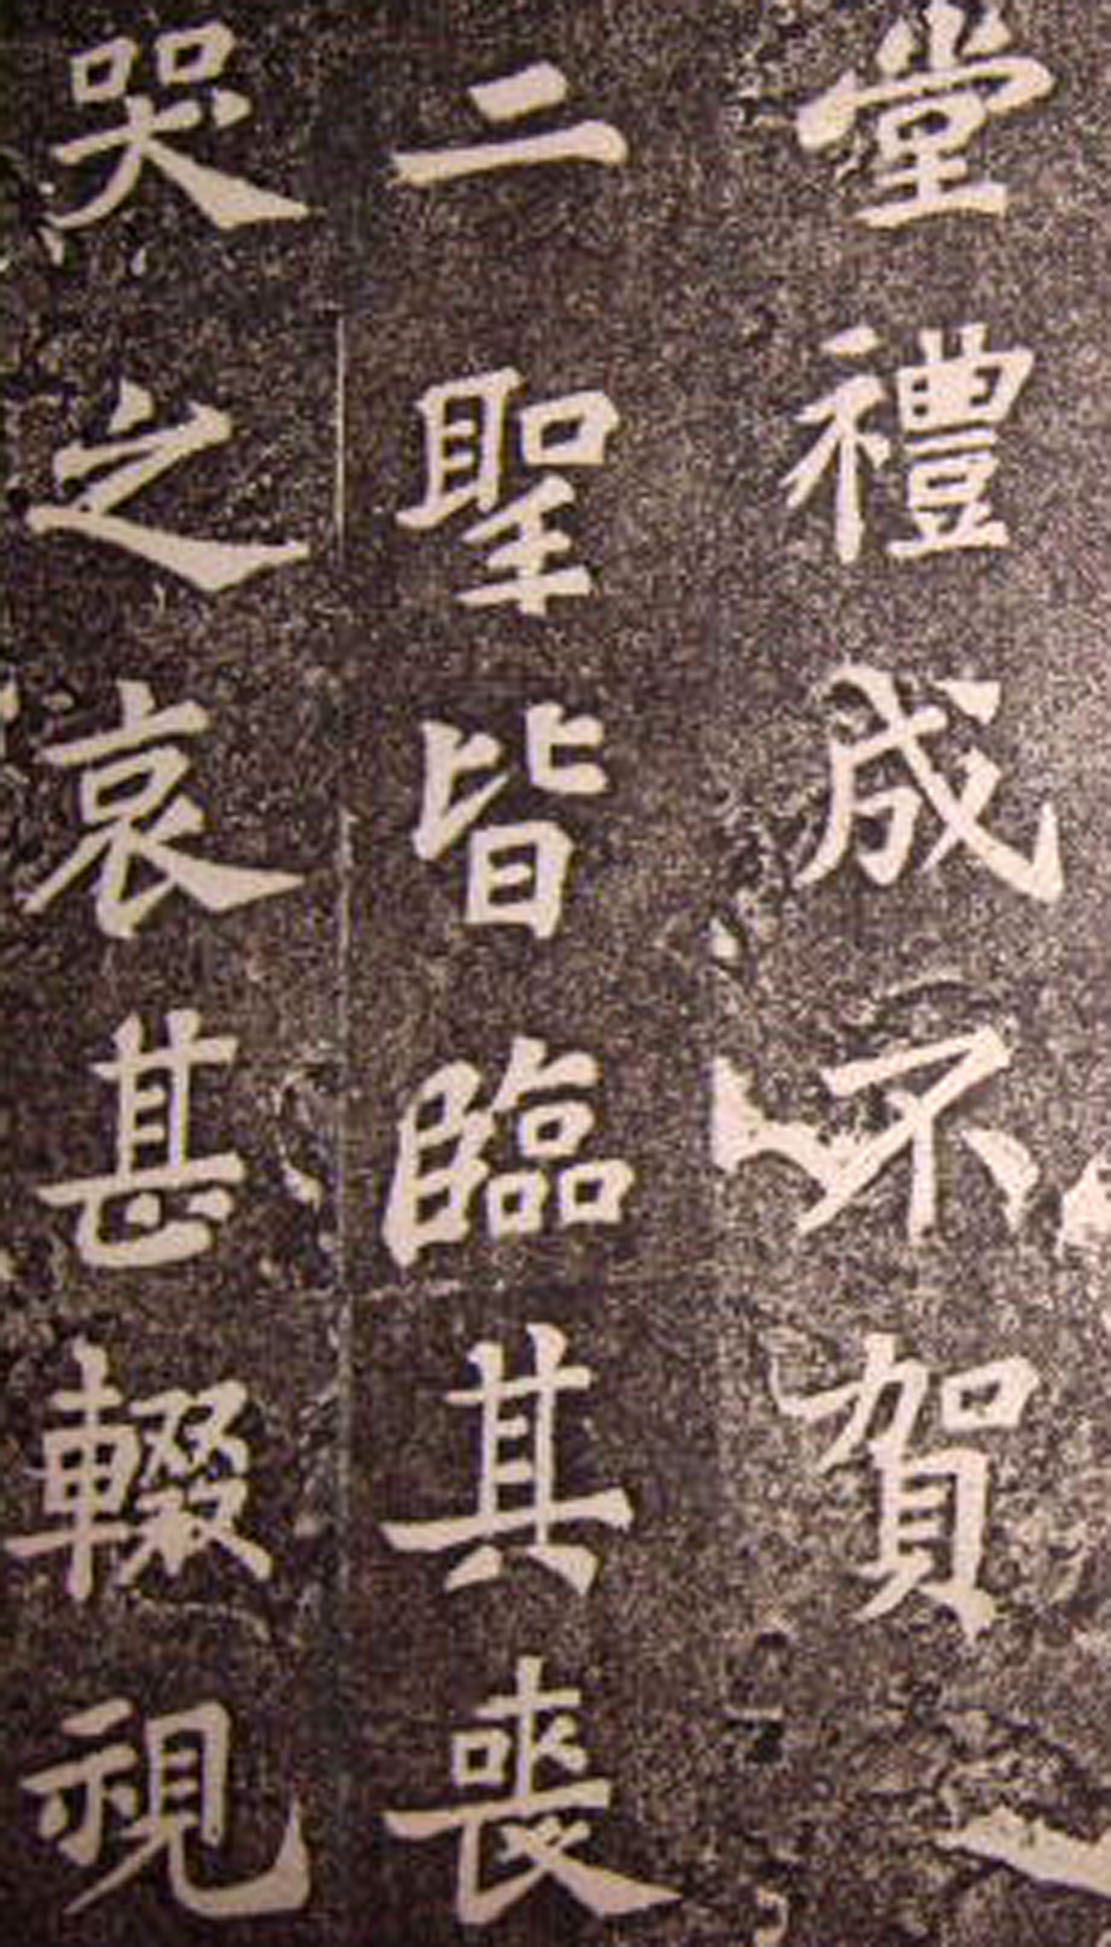 堂禮成不賀
二聖皆臨其喪
哭之哀甚輟視